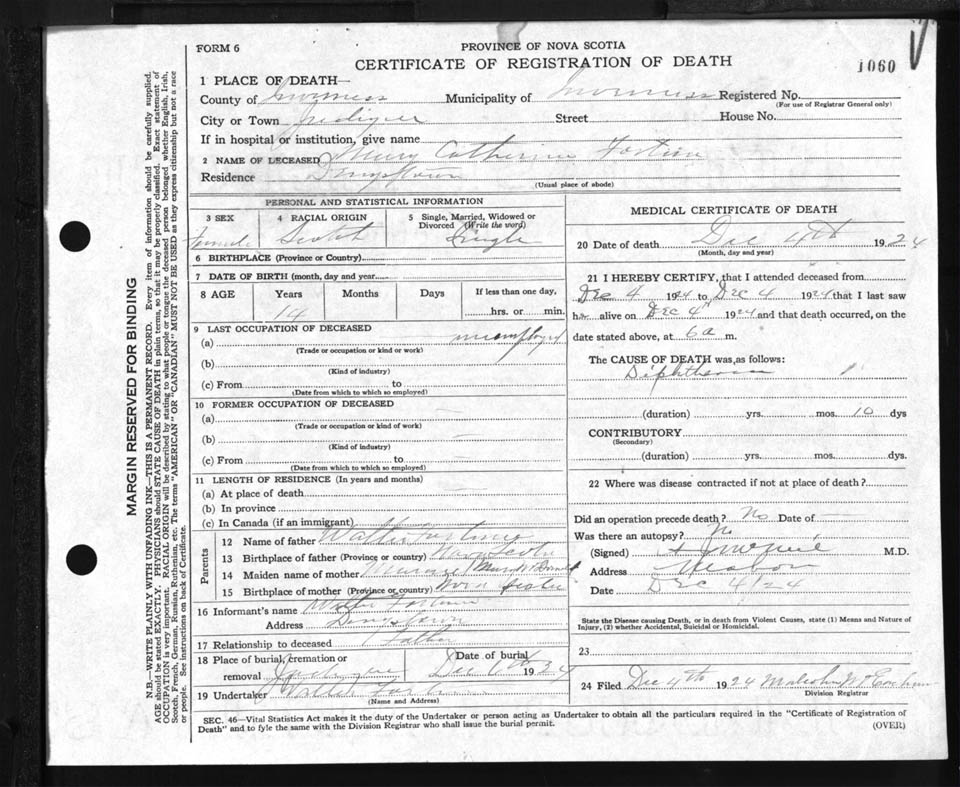 FORM 6
PROVINCE OF NOVA SCOTIA
CERTIFICATE OF REGISTRATION OF DEATH
1060
1 PLACE OF DEATH—
County of Inverness Municipality of Inverness Registered No.
(For use of Registrar General only)
City or Town Street House No.
If in hospital or institution, give name
2 NAME OF DECEASED Mary Catherine
Residence
(Usual place of abode)
PERSONAL AND STATISTICAL INFORMATION
3 SEX
female
4 RACIAL ORIGIN
Scotch
5 Single, Married, Widowed or Divorced (Write the word)
Single
6 BIRTHPLACE (Province or Country)
7 DATE OF BIRTH (month, day and year)
8 AGE Years Months Days If less than one day,
14 hrs. or min.
9 LAST OCCUPATION OF DECEASED
(a) unemployed
(Trade or occupation or kind or work)
(b)
(Kind of industry)
(c) From to
(Date from which to which so employed)
10 FORMER OCCUPATION OF DECEASED
(a)
(Trade or occupation or kind of work)
(b)
(Kind of industry)
(c) From to
(Date from which to which so employed)
11 LENGTH OF RESIDENCE (In years and months)
(a) At place of death
(b) In province
(c) In Canada (if an immigrant)
Parents
12 Name of father Walter
13 Birthplace of father (Province or country) Nova Scotia
14 Maiden name of mother
15 Birthplace of mother (Province or country) Nova Scotia
16 Informant's name Walter
Address
17 Relationship to deceased Father
18 Place of burial, cremation or removal
Date of burial
Dec 6th 19
19 Undertaker Walter
(Name and Address)
MEDICAL CERTIFICATE OF DEATH
20 Date of death Dec 4th 1924
(Month, day and year)
21 I HEREBY CERTIFY, that I attended deceased from
Dec 4 1924 to Dec 4 1924 that I last saw
h alive on Dec 4 1924 and that death occurred, on the
date stated above, at 6 a m.
The CAUSE OF DEATH was as follows:
Diphtheria
(duration) yrs. mos. 10 dys
CONTRIBUTORY
(Secondary)
(duration) yrs. mos. dys.
22 Where was disease contracted if not at place of death?
Did an operation precede death? No Date of
Was there an autopsy? No
(Signed) M.D.
Address
Date Dec 4/24
State the Disease causing Death, or in death from Violent Causes, state (1) Means and Nature of Injury, (2) whether Accidental, Suicidal or Homicidal.
23
24 Filed Dec 4th 1924 Malcolm
Division Registrar
SEC. 46—Vital Statistics Act makes it the duty of the Undertaker or person acting as Undertaker to obtain all the particulars required in the "Certificate of Registration of
Death" and to fyle the same with the Division Registrar who shall issue the burial permit.
(OVER)
MARGIN RESERVED FOR BINDING
N.B.—WRITE PLAINLY WITH UNFADING INK—THIS IS A PERMANENT RECORD. Every item of information should be carefully supplied.
AGE should be stated EXACTLY. PHYSICIANS should STATE CAUSE OF DEATH in plain terms, so that it may be properly classified. Exact statement of
OCCUPATION is very important. RACIAL ORIGIN will be described by stating to what people or tongue the deceased person belonged whether English, Irish,
Scotch, French, German, Russian, Ruthenian, etc. The terms "AMERICAN" OR "CANADIAN" MUST NOT BE USED as they express citizenship but not a race
or people. See instructions on back of Certificate.